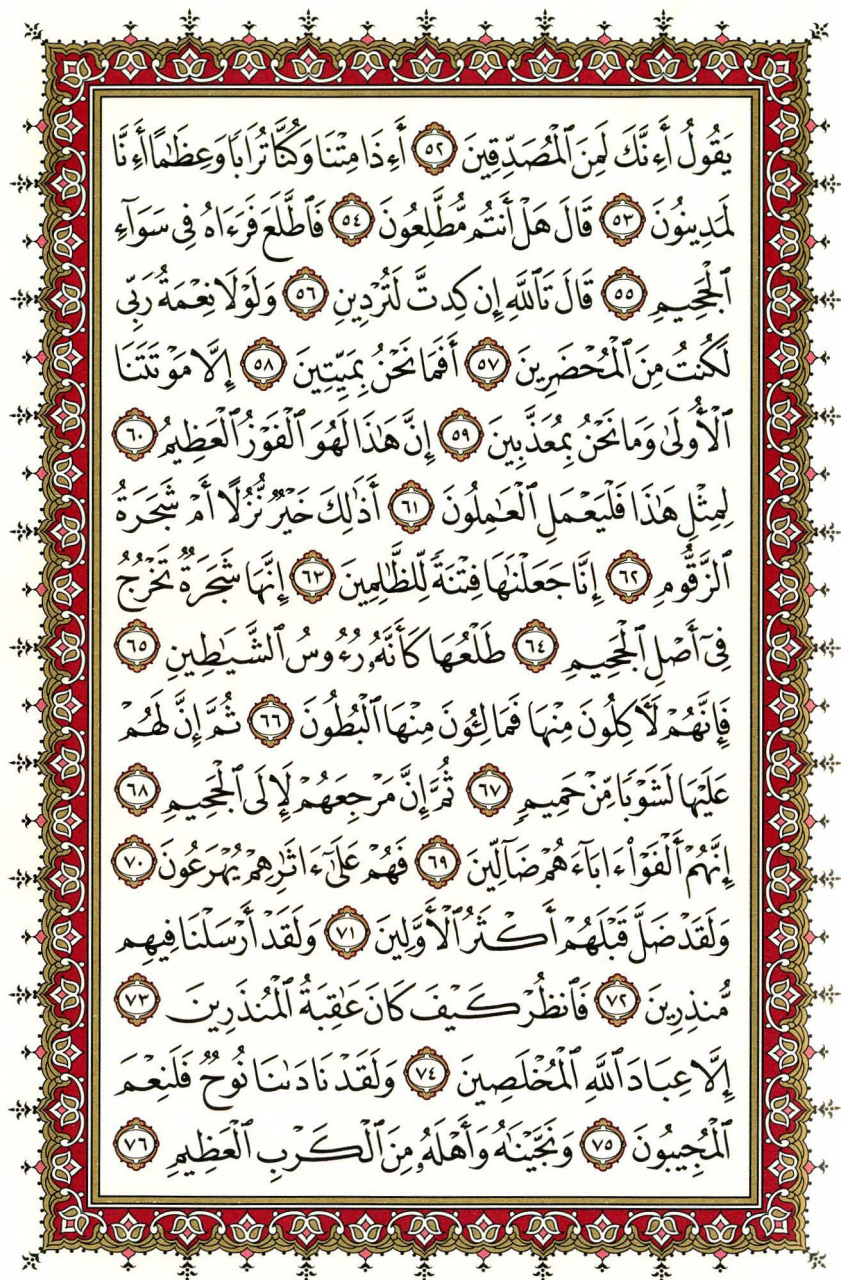 يَقُولُ أَءِنَّكَ لَمِنَ ٱلْمُصَدِّقِينَ ٥٢ أَءِذَا مِتْنَا وَكُنَّا تُرَابًا وَعِظَٰمًا أَءِنَّا
لَمَدِينُونَ ٥٣ قَالَ هَلْ أَنتُم مُّطَّلِعُونَ ٥٤ فَٱطَّلَعَ فَرَءَاهُ فِى سَوَآءِ
ٱلْجَحِيمِ ٥٥ قَالَ تَٱللَّهِ إِن كِدتَّ لَتُرْدِينِ ٥٦ وَلَوْلَا نِعْمَةُ رَبِّى
لَكُنتُ مِنَ ٱلْمُحْضَرِينَ ٥٧ أَفَمَا نَحْنُ بِمَيِّتِينَ ٥٨ إِلَّا مَوْتَتَنَا
ٱلْأُولَىٰ وَمَا نَحْنُ بِمُعَذَّبِينَ ٥٩ إِنَّ هَٰذَا لَهُوَ ٱلْفَوْزُ ٱلْعَظِيمُ ٦٠
لِمِثْلِ هَٰذَا فَلْيَعْمَلِ ٱلْعَٰمِلُونَ ٦١ أَذَٰلِكَ خَيْرٌ نُّزُلًا أَمْ شَجَرَةُ
ٱلزَّقُّومِ ٦٢ إِنَّا جَعَلْنَٰهَا فِتْنَةً لِّلظَّٰلِمِينَ ٦٣ إِنَّهَا شَجَرَةٌ تَخْرُجُ
فِىٓ أَصْلِ ٱلْجَحِيمِ ٦٤ طَلْعُهَا كَأَنَّهُۥ رُءُوسُ ٱلشَّيَٰطِينِ ٦٥
فَإِنَّهُمْ لَءَاكِلُونَ مِنْهَا فَمَالِـُٔونَ مِنْهَا ٱلْبُطُونَ ٦٦ ثُمَّ إِنَّ لَهُمْ
عَلَيْهَا لَشَوْبًا مِّنْ حَمِيمٍ ٦٧ ثُمَّ إِنَّ مَرْجِعَهُمْ لَإِلَى ٱلْجَحِيمِ ٦٨
إِنَّهُمْ أَلْفَوْا۟ ءَابَآءَهُمْ ضَآلِّينَ ٦٩ فَهُمْ عَلَىٰٓ ءَاثَٰرِهِمْ يُهْرَعُونَ ٧٠
وَلَقَدْ ضَلَّ قَبْلَهُمْ أَكْثَرُ ٱلْأَوَّلِينَ ٧١ وَلَقَدْ أَرْسَلْنَا فِيهِم
مُّنذِرِينَ ٧٢ فَٱنظُرْ كَيْفَ كَانَ عَٰقِبَةُ ٱلْمُنذَرِينَ ٧٣
إِلَّا عِبَادَ ٱللَّهِ ٱلْمُخْلَصِينَ ٧٤ وَلَقَدْ نَادَىٰنَا نُوحٌ فَلَنِعْمَ
ٱلْمُجِيبُونَ ٧٥ وَنَجَّيْنَٰهُ وَأَهْلَهُۥ مِنَ ٱلْكَرْبِ ٱلْعَظِيمِ ٧٦